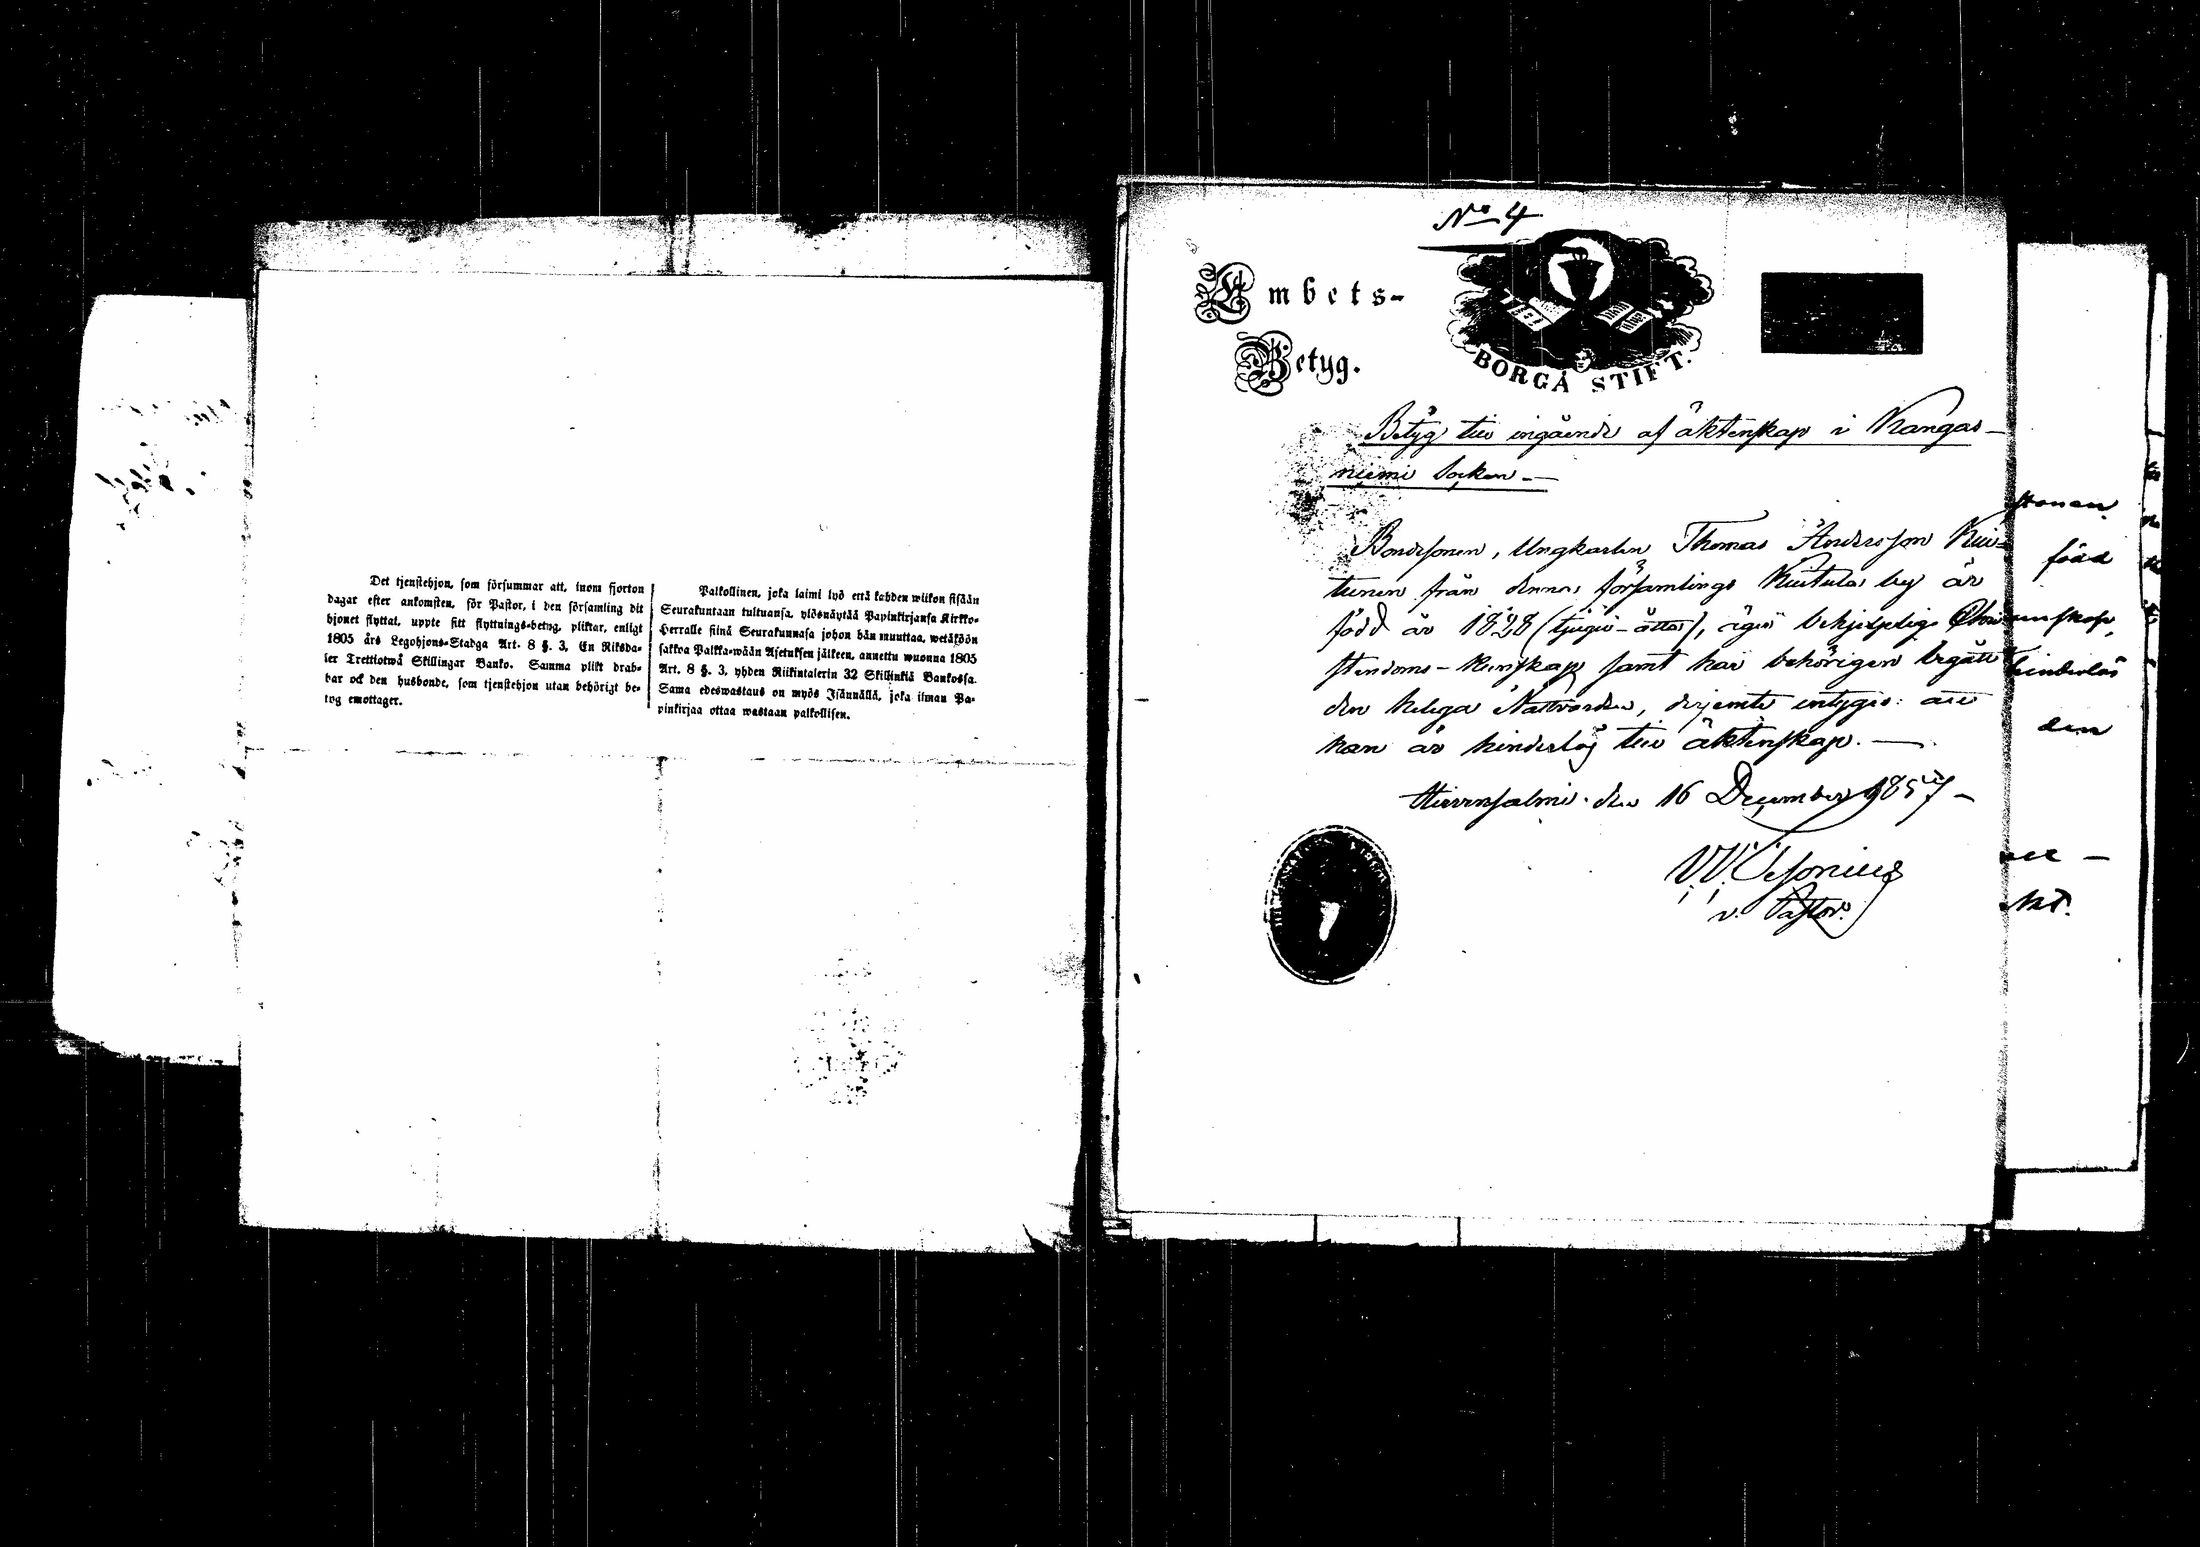 Det tjenstehjon, som försummar att, inom fjorton
dagar efter ankomsten, för Pastor, i den församling dit
hjonet flyttat, uppte sitt flyttnings-betyg, pliktar, enligt
1805 års Legohjons-Stadga Art. 8 §. 3, En Riksda-
ler Trettiotwå Skillingar Banko. Samma plikt drab-
bar ock den husbonde, som tjenstehjon utan behörigt be-
tyg emottager.
Palkollinen, joka laimi lyö että kahden wiikon sisään
Seurakuntaan tultuansa, ylösnäytää Papinkirjansa Kirkko-
Herralle siinä Seurakunnasa johon hän muuttaa, wetäköön
sakkoa Palkka-wään Asetuksen jälkeen, annettu wuonna 1805
Art. 8 §. 3, yhden Riikintalerin 32 Skillinkiä Bankossa.
Sama edeswastaus on myös Isännällä, joka ilman Pa-
pinkirjaa ottaa wastaan palkollisen.
No 4
Embets-
Betyg.
BORGÅ STIFT.
Betyg till ingående af äktenskap i Kangas-
niemi Socken.—
Bondesonen, Ungkarlen Thomas Andersson Kui-
tunen från denna församlings Kuitula by är
född år 1828 (tjugu-åtta), äger behjelplig Chri-
stendoms-kunskap samt har behörigen begått
den heliga Nattvarden, derjemte intygas: att
han är hinderlös till äktenskap.—
Hirvensalmi den 16 December 1857—
v. Pastor.
född
unskap,
hinderlös
den